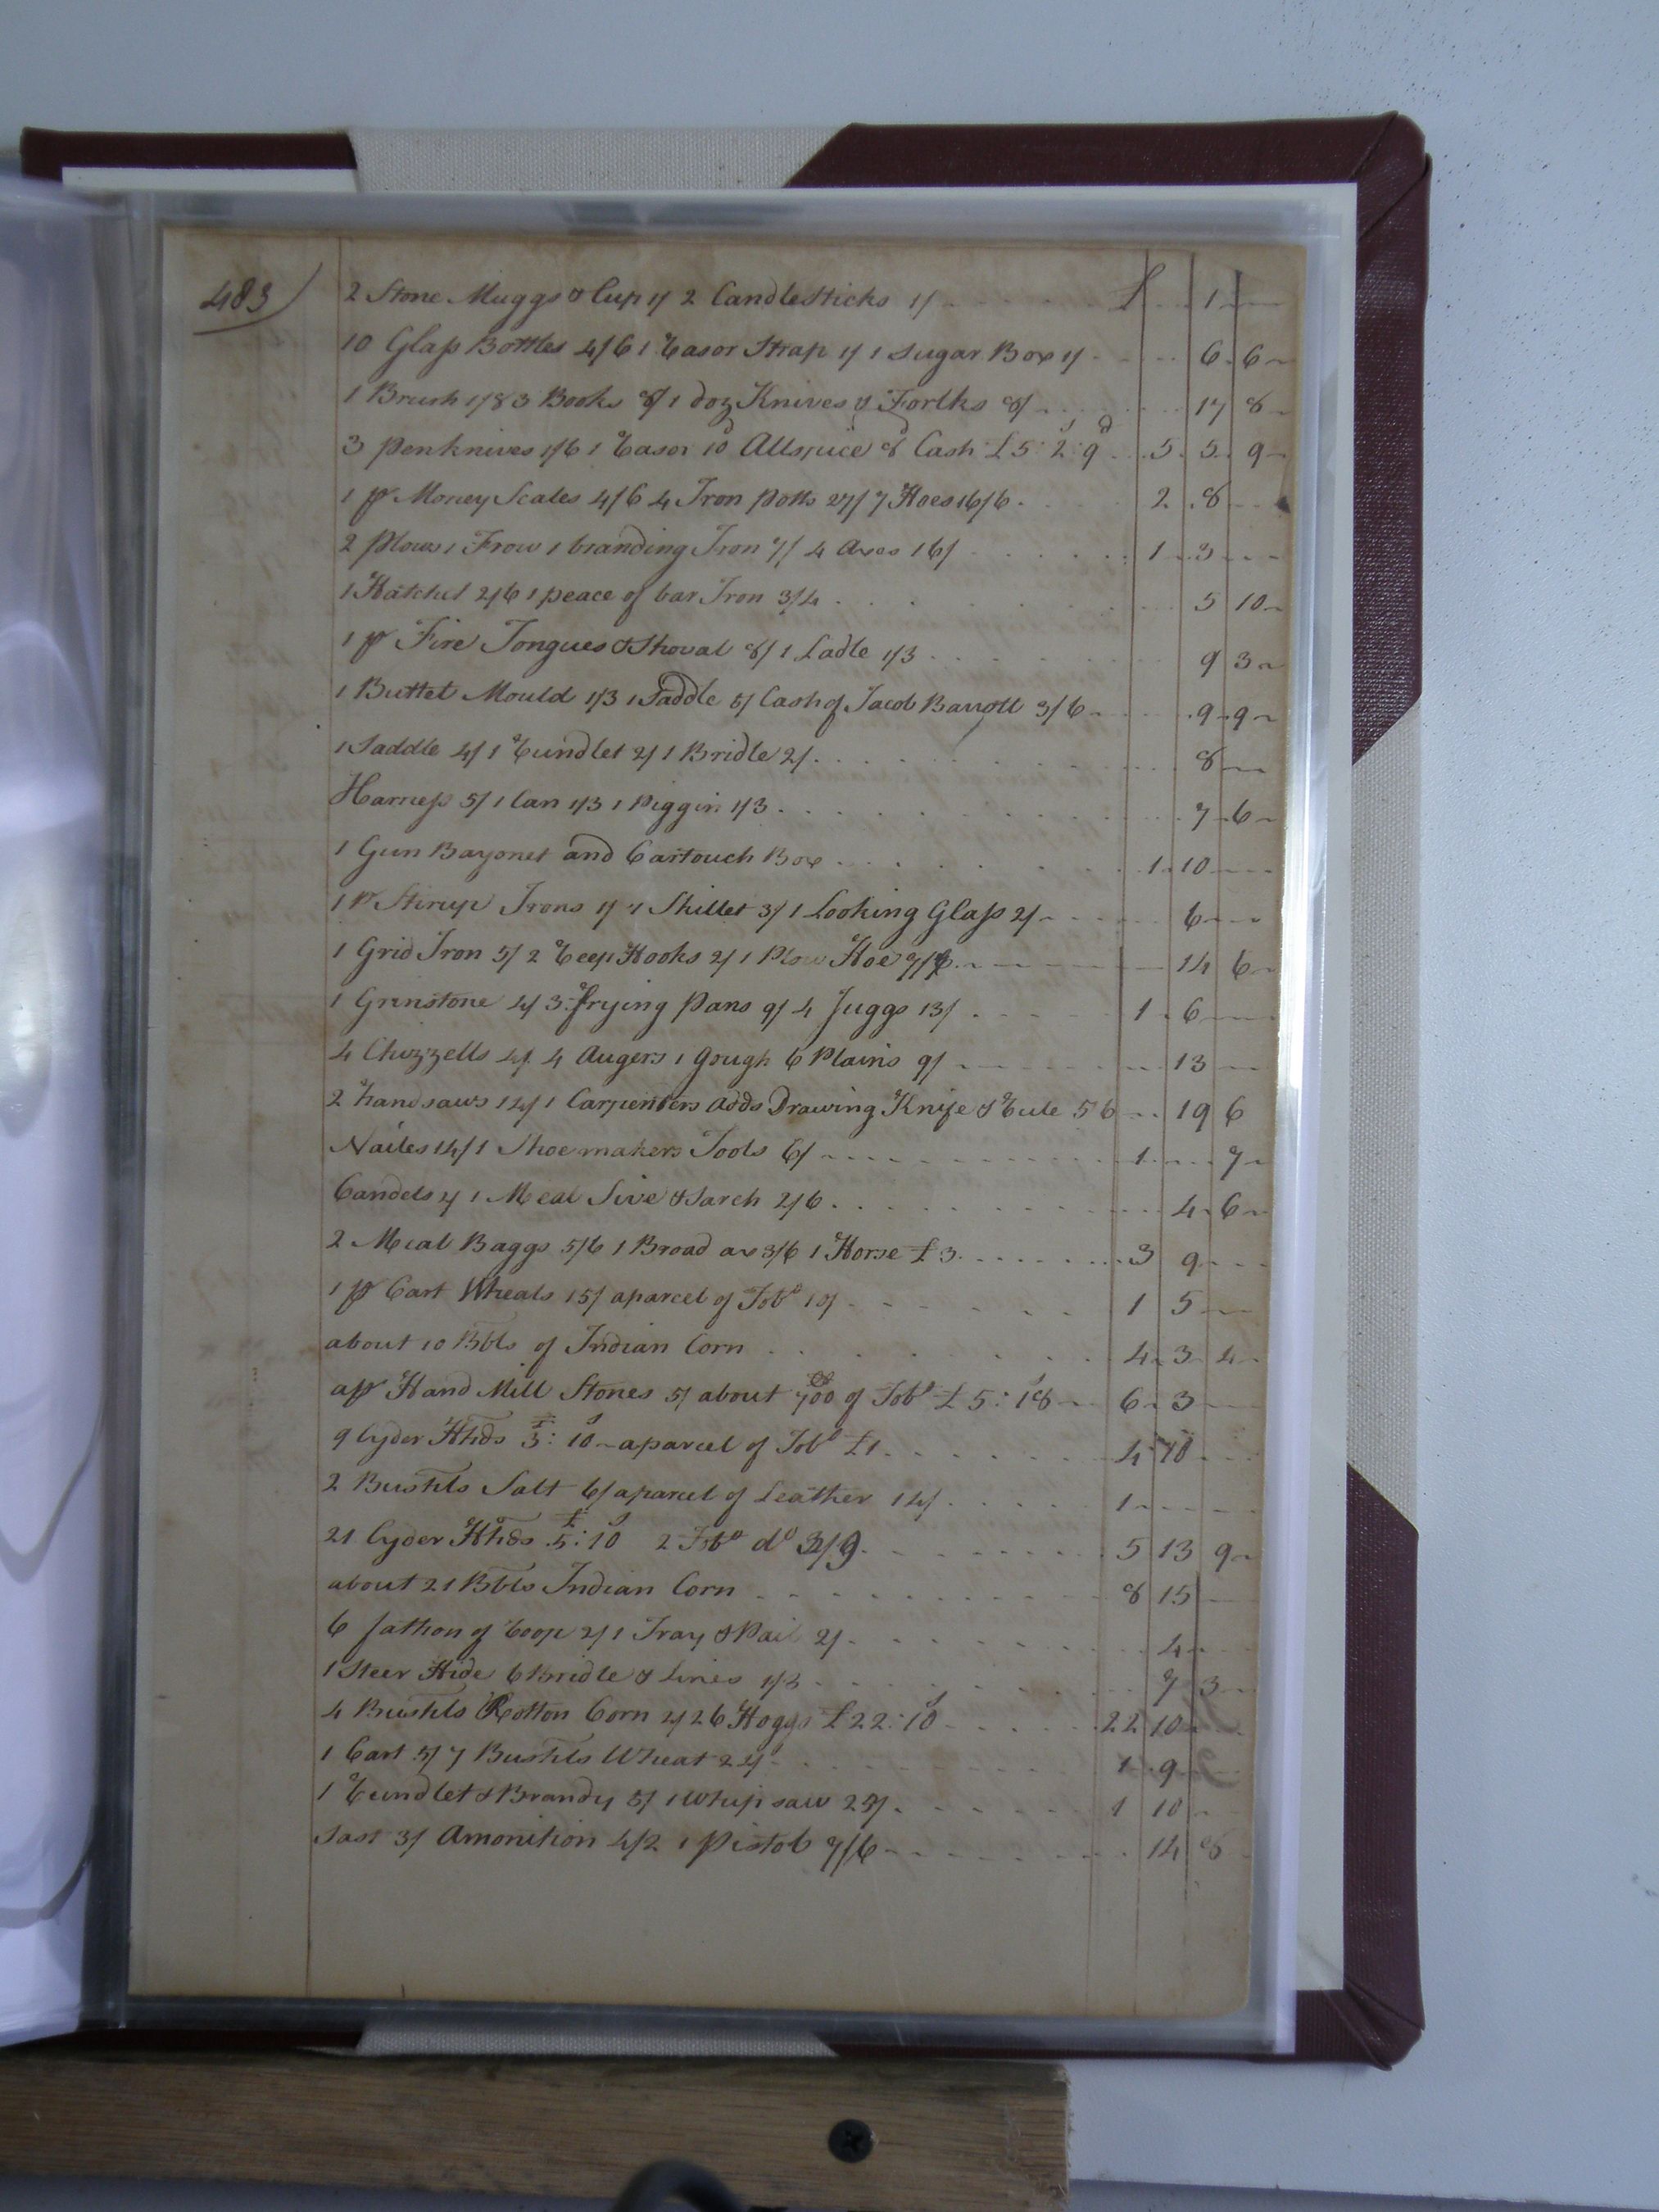 483
2 Stone Muggs & Cup 1/ 2 CandleSticks 1/ £ 1
10 Glass Bottles 4/6 1 Rasor Strap 1/ 1 Sugar Box 1/ 6 6
1 Brush 1/8 3 Books 8/ 1 doz Knives & Forlks 8/ 17 8
3 penknives 1/6 1 Rasor 10d Allspice 8 Cash £5:2s:9d 5 5 9
1 pr Money Scales 4/6 4 Iron potts 27/ 7 Hoes 16/6 2 8
2 Plows 1 Frow 1 branding Iron 7/ 4 Axes 16/ 1 3
1 Hatchet 2/6 1 peace of bar Iron 3/4 5 10
1 pr Fire Tongues & Shoval 8/ 1 Ladle 1/3 9 3
1 Buttet Mould 1/3 1 Saddle 5/ Cash of Jacob Barrott 3/6 9 9
1 Saddle 4/ 1 Rundlet 2/ 1 Bridle 2/ 8
Harness 5/ 1 Can 1/3 1 Piggin 1/3 7 6
1 Gun Bayonet and Cartouch Box 1 10
1 Pr Stirup Irons 1/ 1 Skillet 3/ 1 Looking Glass 2/ 6
1 Grid Iron 5/ 2 Reep Hooks 2/ 1 Plow Hoe 7/6 14 6
1 Grinstone 4/ 3 frying Pans 9/ 4 Juggs 13/ 1 6
4 Chizzells 4/ 4 Augers 1 Gough 6 Plains 9/ 13
2 handsaws 14/ 1 Carpenters adds Drawing Knife & Rule 5 6 19 6
Nailes 14/1 Shoemakers Tools 6/ 1 7
Candels 2/ 1 Meal Sive & Sarch 2/6 4 6
2 Meal Baggs 5/6 1 Broad ax 3/6 1 Horse £3 3 9
1 pr Cart Wheals 15/ a parcel of Tobo 10/ 1 5
about 10 Bbls of Indian Corn 4 3 4
a pr Hand Mill Stones 5/ about 700 of Tobo £5:18s 6 3
9 Cyder Hhds £3:10s a parcel of Tobo £1 4 10
2 Bushls Salt 6/ a parcel of Leather 14/ 1
21 Cyder Hhds £5:10s 2 Tobo do 3/9 5 13 9
about 21 Bbls Indian Corn 8 15
6 fathon of Roop 2/ 1 Tray & Pail 2/ 4
1 Steer Hide 6 Bridle & Lines 1/3 7 3
4 Bushls Rotton Corn 4/ 26 Hoggs £22:10s 22 10
1 Cart 5/ 7 Bushls Wheat 24/ 1 9
1 Rundlet & Brandy 5/ 1 whip saw 25/ 1 10
Last 3/ Amonition 4/2 1 Pistol 7/6 14 8